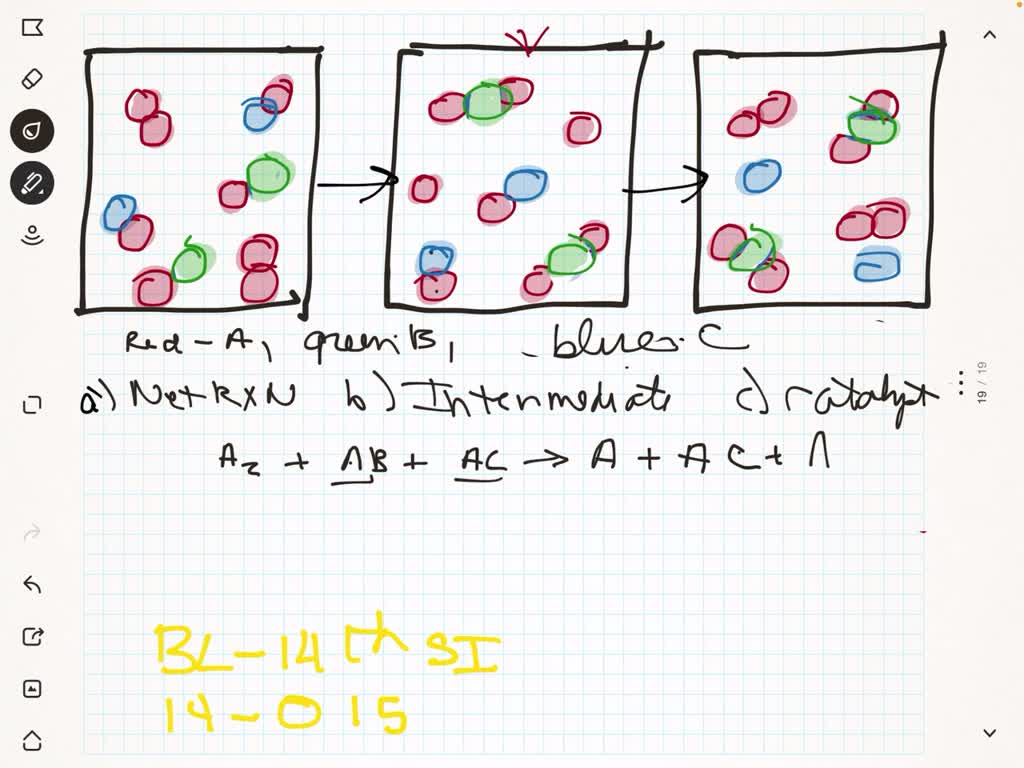 Red - A, green: B, - blues. C
a) Net RXN b) Intermediate c) catalyst
A2 + AB + AC → A + AC + A
BL - 14th SI
14 - 015
19 / 19